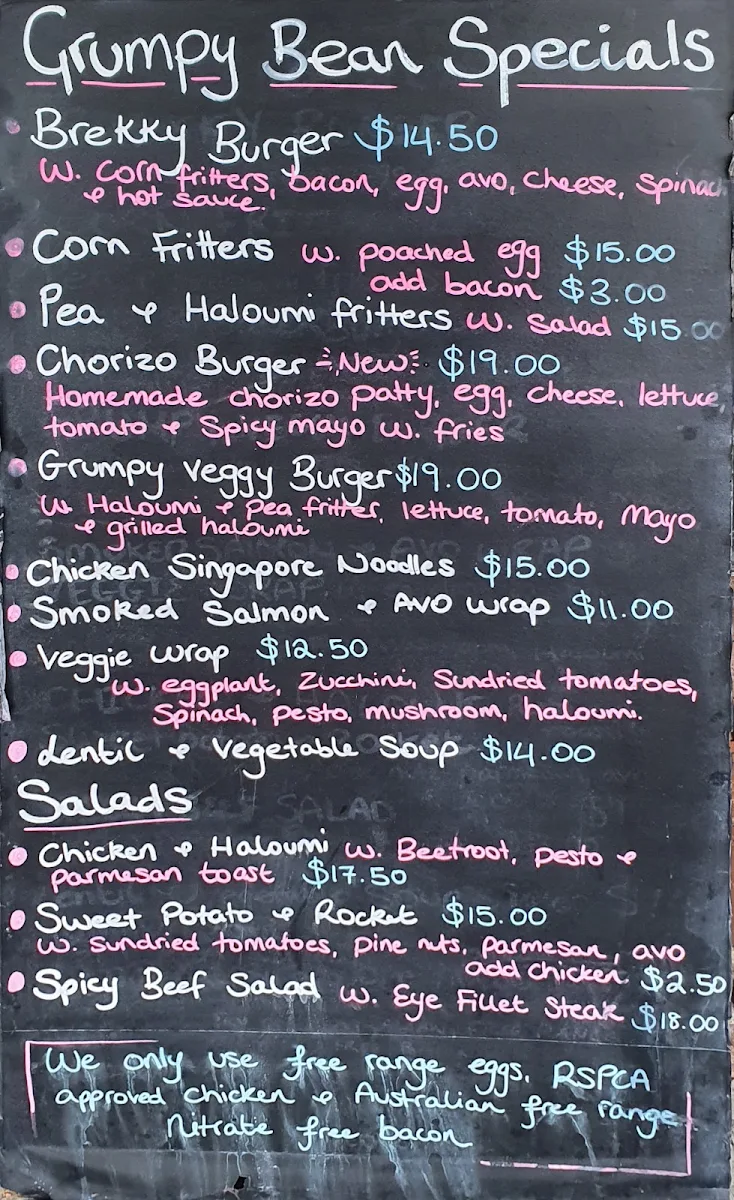 Grumpy Bean Specials
Brekky Burger $14.50
w. Corn fritters, bacon, egg, avo, cheese, spinach
& hot sauce.
Corn Fritters w. poached egg $15.00
add bacon $3.00
Pea & Haloumi fritters w. salad $15.00
Chorizo Burger New $19.00
Homemade chorizo patty, egg, cheese, lettuce,
tomato & Spicy mayo w. fries
Grumpy Veggy Burger $19.00
w Haloumi & pea fritter, lettuce, tomato, Mayo
& grilled haloumi
Chicken Singapore Noodles $15.00
Smoked Salmon & AVO wrap $11.00
Veggie wrap $12.50
w. eggplant, zucchini, Sundried tomatoes,
Spinach, pesto, mushroom, haloumi.
Lentil & Vegetable Soup $14.00
Salads
Chicken & Haloumi w. Beetroot, pesto &
parmesan toast $17.50
Sweet Potato & Rocket $15.00
w. sundried tomatoes, pine nuts, parmesan, avo
add chicken $2.50
Spicy Beef Salad w. Eye Fillet Steak $18.00
We only use free range eggs, RSPCA
approved chicken & Australian free range
Nitrate free bacon